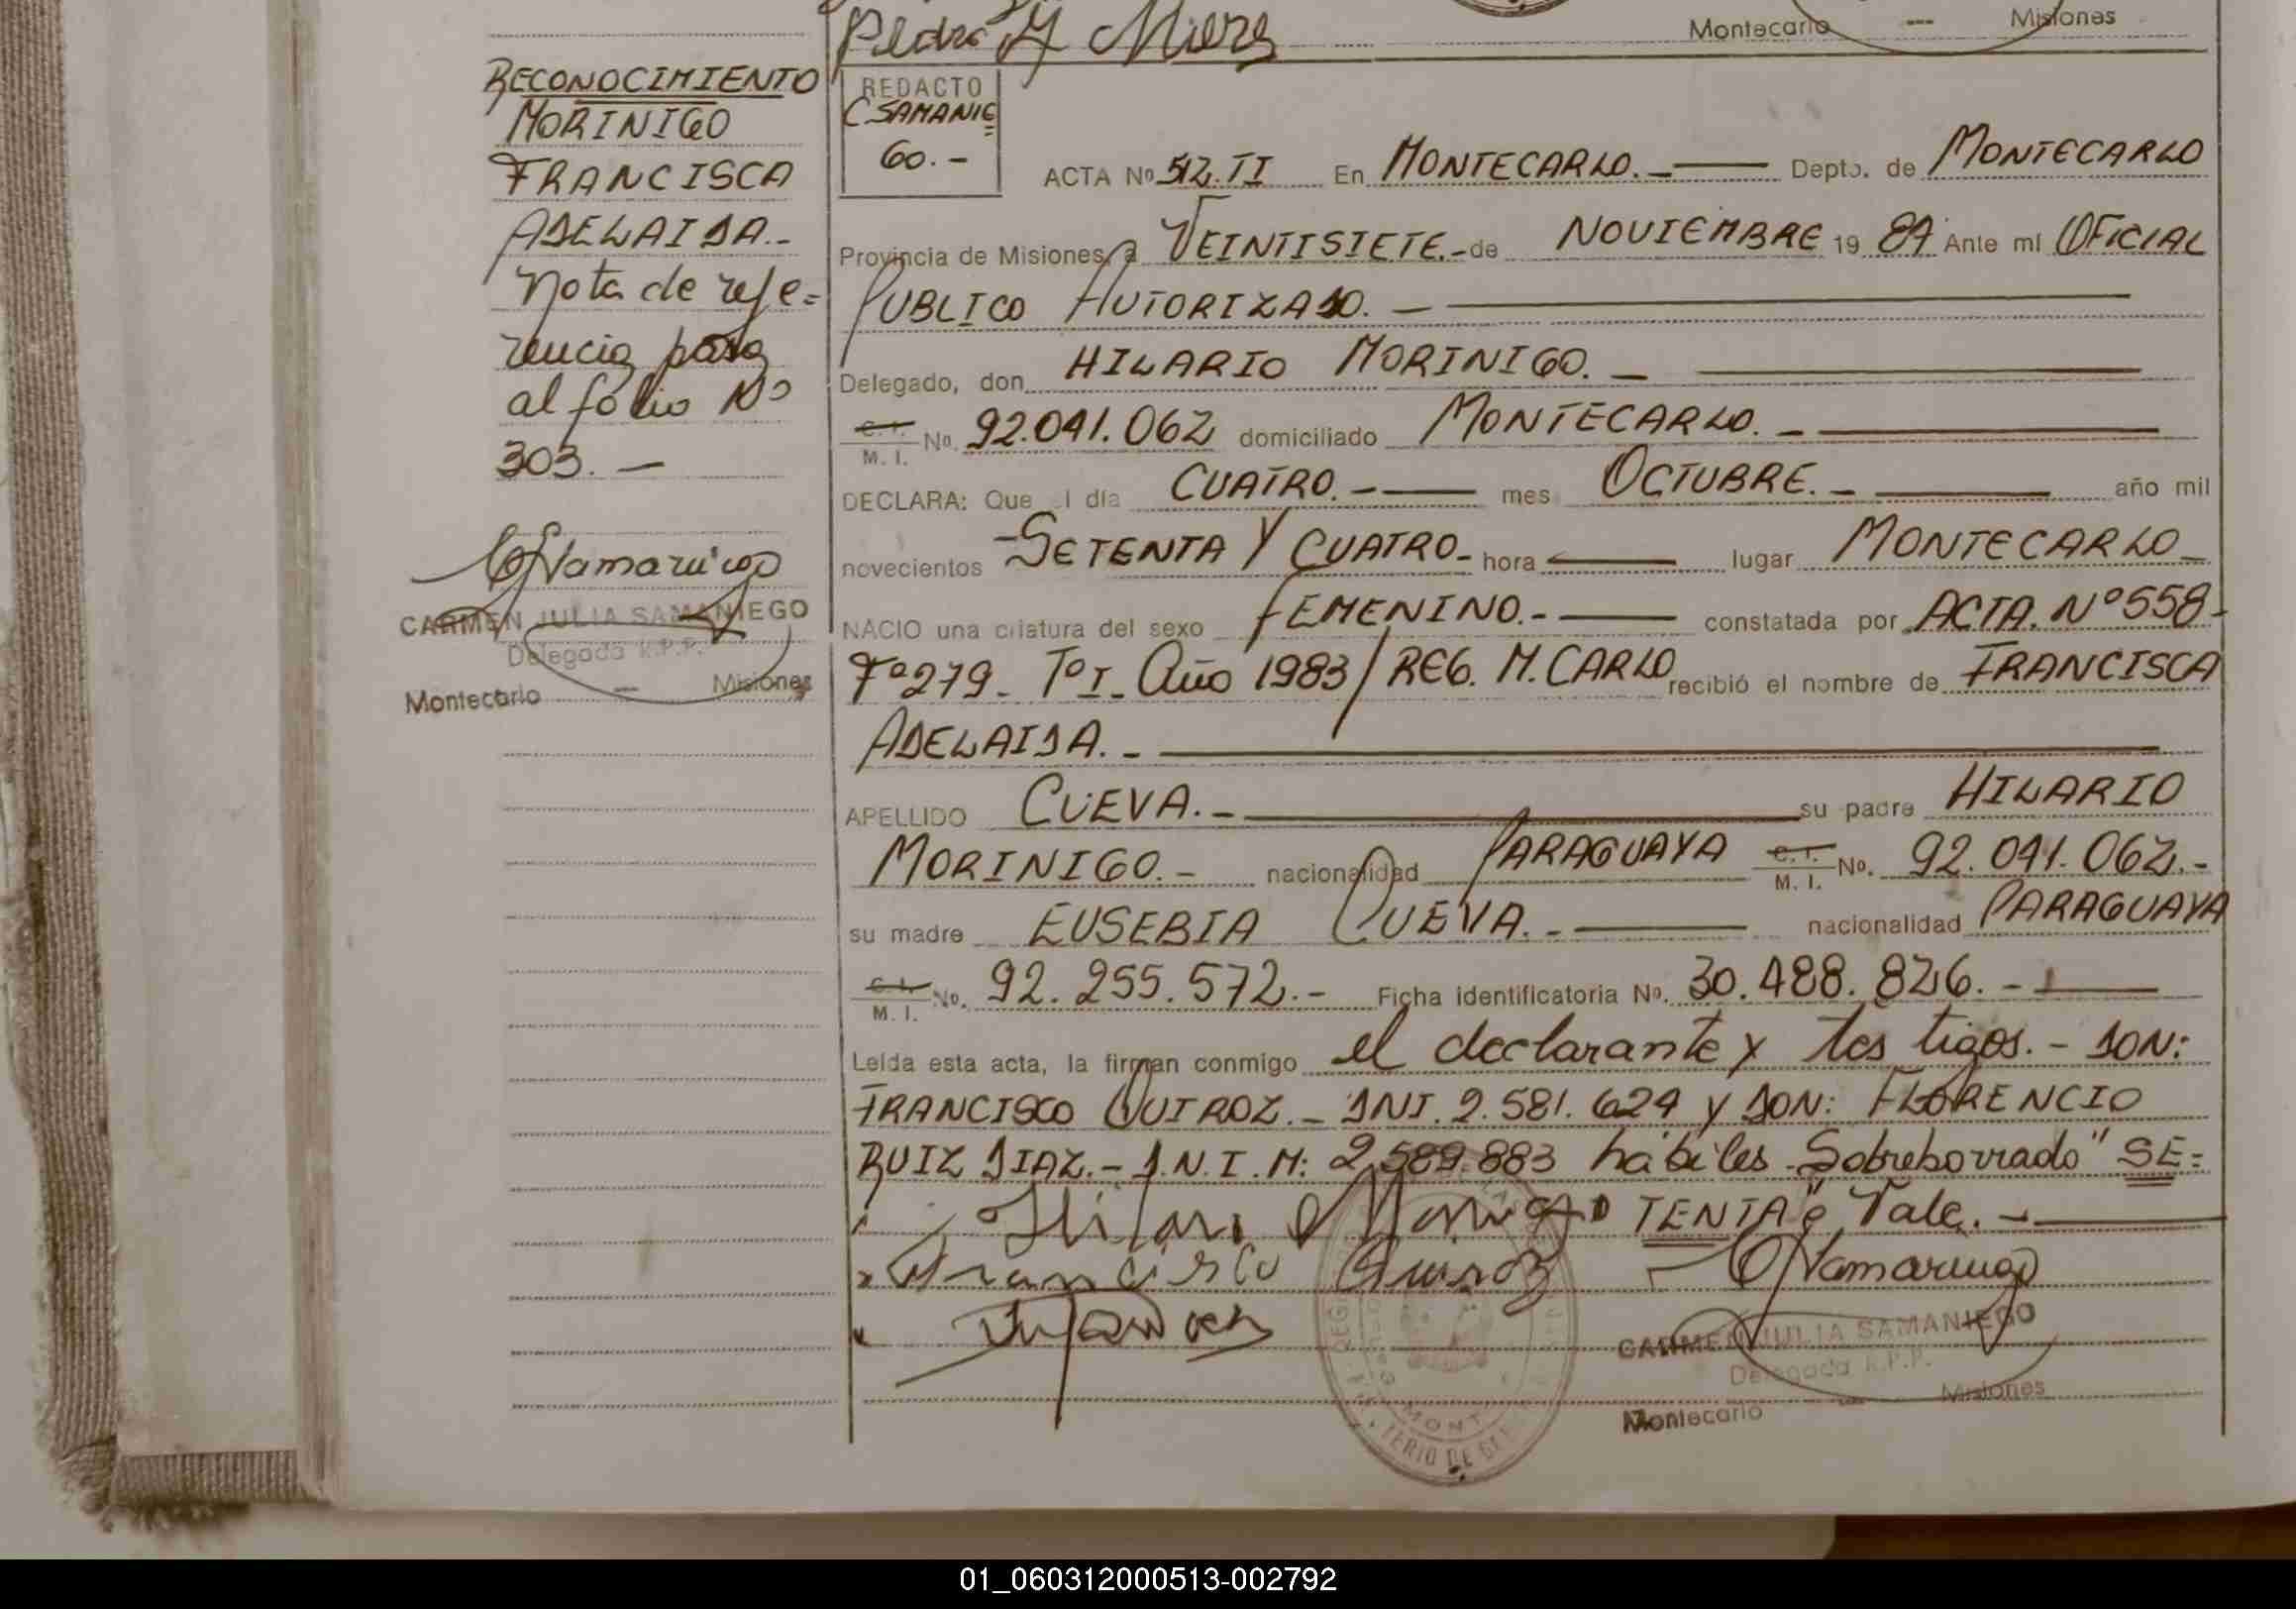 Pedro Y Miers
Montecarlo — Misiones
RECONOCIMIENTO
MORINIGO
FRANCISCA
ADELAIDA.-
Nota de refe=
rencia pasa
al folio Nº
303.—
CARMEN JULIA SAMANIEGO
Delegada R.P.P.
Montecarlo — Misiones
REDACTO
C SAMANIEGO
60.-
ACTA Nº 512. TI En MONTECARLO.- Depto. de MONTECARLO
Provincia de Misiones, a VEINTISIETE.- de NOVIEMBRE 19 87 Ante mí OFICIAL
PUBLICO AUTORIZADO. —
Delegado, don HILARIO MORINIGO. —
C. I. M. I. No. 92.041.062 domiciliado MONTECARLO. —
DECLARA: Que l día CUATRO.- mes OCTUBRE.- año mil
novecientos -SETENTA Y CUATRO- hora lugar MONTECARLO-
NACIO una criatura del sexo FEMENINO.- constatada por ACTA. Nº 558-
Fº 279- Tº I- Año 1983/ REG. M. CARLO recibió el nombre de FRANCISCA
ADELAIDA. -
APELLIDO CUEVA.- su padre HILARIO
MORINIGO.- nacionalidad PARAGUAYA C. I. M. I. No. 92.041.062.-
su madre EUSEBIA CUEVA.- nacionalidad PARAGUAYA
C. I. M. I. No. 92.255.572.- Ficha identificatoria No. 30.488.826.-
Leída esta acta, la firman conmigo el declarante y tes tigos.- DON:
FRANCISCO QUIROZ.- DNI. 2.581.624 y DON: FLORENCIO
RUIZ DIAZ.- D.N.I.M: 2.589.883 hábiles. Sobreborrado " SE=
TENTA" Vale.-
Hilario Morinigo
Francisco Quiroz
CARMEN JULIA SAMANIEGO
Delegada R.P.P.
Montecarlo — Misiones
01_060312000513-002792